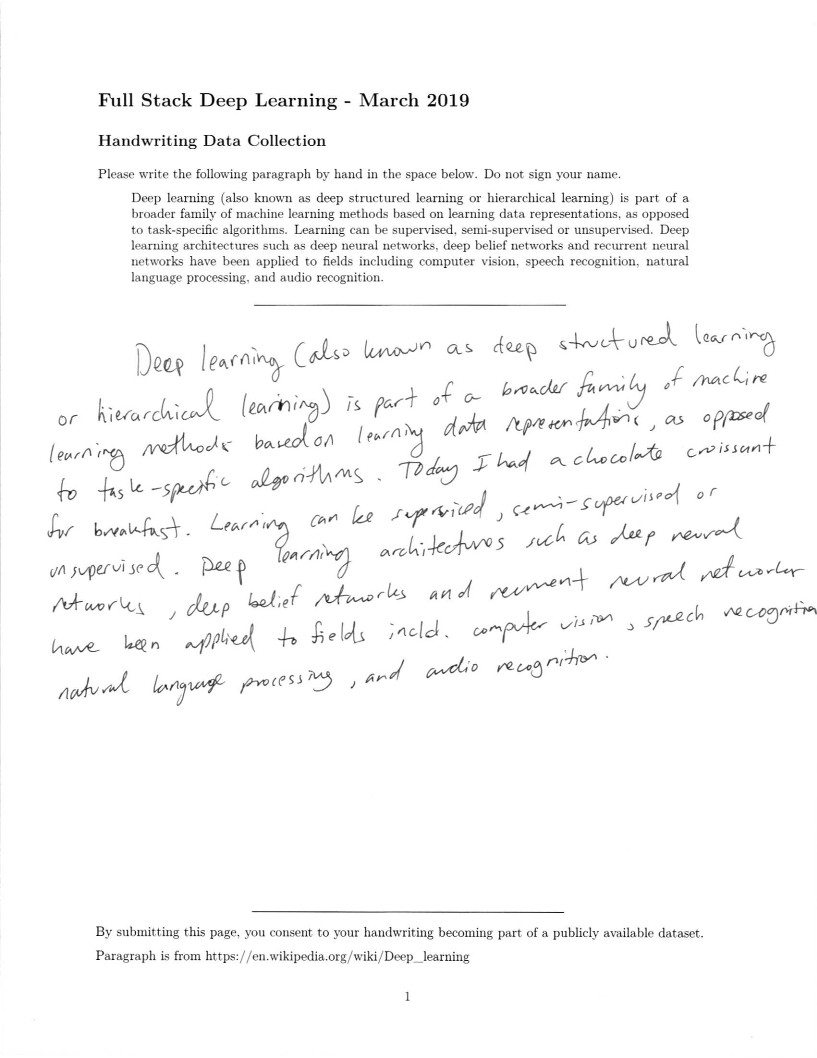 Full Stack Deep Learning - March 2019
Handwriting Data Collection
Please write the following paragraph by hand in the space below. Do not sign your name.
Deep learning (also known as deep structured learning or hierarchical learning) is part of a
broader family of machine learning methods based on learning data representations, as opposed
to task-specific algorithms. Learning can be supervised, semi-supervised or unsupervised. Deep
learning architectures such as deep neural networks, deep belief networks and recurrent neural
networks have been applied to fields including computer vision, speech recognition, natural
language processing, and audio recognition.
Deep learning (also known as deep structured learning
or hierarchical learning) is part of a broader family of machine
learning methods based on learning data representations, as opposed
to task-specific algorithms. Today I had a chocolate croissant
for breakfast. Learning can be superviced, semi-supervised or
unsupervised. Deep learning architectures such as deep neural
networks, deep belief networks and recurrent neural networks
have been applied to fields incld. computer vision, speech recognition
natural language processing, and audio recognition.
By submitting this page, you consent to your handwriting becoming part of a publicly available dataset.
Paragraph is from https://en.wikipedia.org/wiki/Deep_learning
1